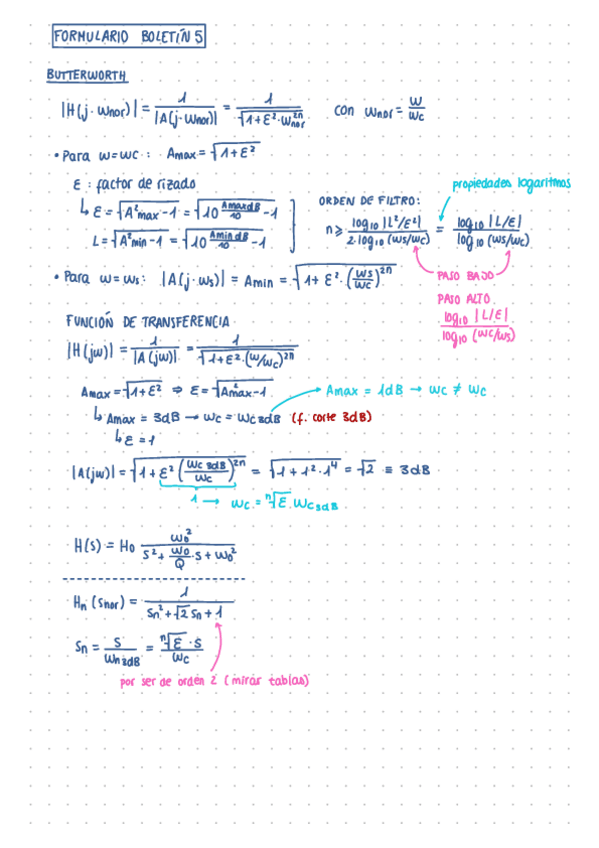 FORMULARIO BOLETÍN 5
BUTTERWORTH
|H(j·Wnor)| = 1/|A(j·Wnor)| = 1/√(1+ε²·Wnor²ⁿ) con Wnor = W/Wc
• Para w=wc : Amax = √(1+ε²)
ε : factor de rizado
propiedades logaritmos
↳ ε = √(A²max -1) = √(10^(AmaxdB/10) -1)
L = √(A²min -1) = √(10^(AmindB/10) -1)
ORDEN DE FILTRO:
n ≥ log₁₀|L²/ε²| / 2·log₁₀(ws/wc) = log₁₀|L/ε| / log₁₀(ws/wc)
• Para w=ws: |A(j·ws)| = Amin = √(1+ε²·(ws/wc)²ⁿ)
PASO BAJO
PASO ALTO
log₁₀|L/ε| / log₁₀(wc/ws)
FUNCIÓN DE TRANSFERENCIA
|H(jw)| = 1/|A(jw)| = 1/√(1+ε²·(w/wc)²ⁿ)
Amax = √(1+ε²) ⇒ ε = √(A²max -1)
Amax = 1dB → wc ≠ wc
↳ Amax = 3dB → wc = wc3dB (f. corte 3dB)
↳ ε = 1
|A(jw)| = √(1+ε²(wc3dB/wc)²ⁿ) = √(1+1²·1⁴) = √2 ≡ 3dB
1 → wc = ⁿ√ε · wc3dB
H(s) = Ho w₀²/(s² + w₀/Q·s + w₀²)
Hn(snor) = 1/(sn² + √2 sn + 1)
Sn = s/wn3dB = ⁿ√ε·s/wc
por ser de orden 2 (mirar tablas)